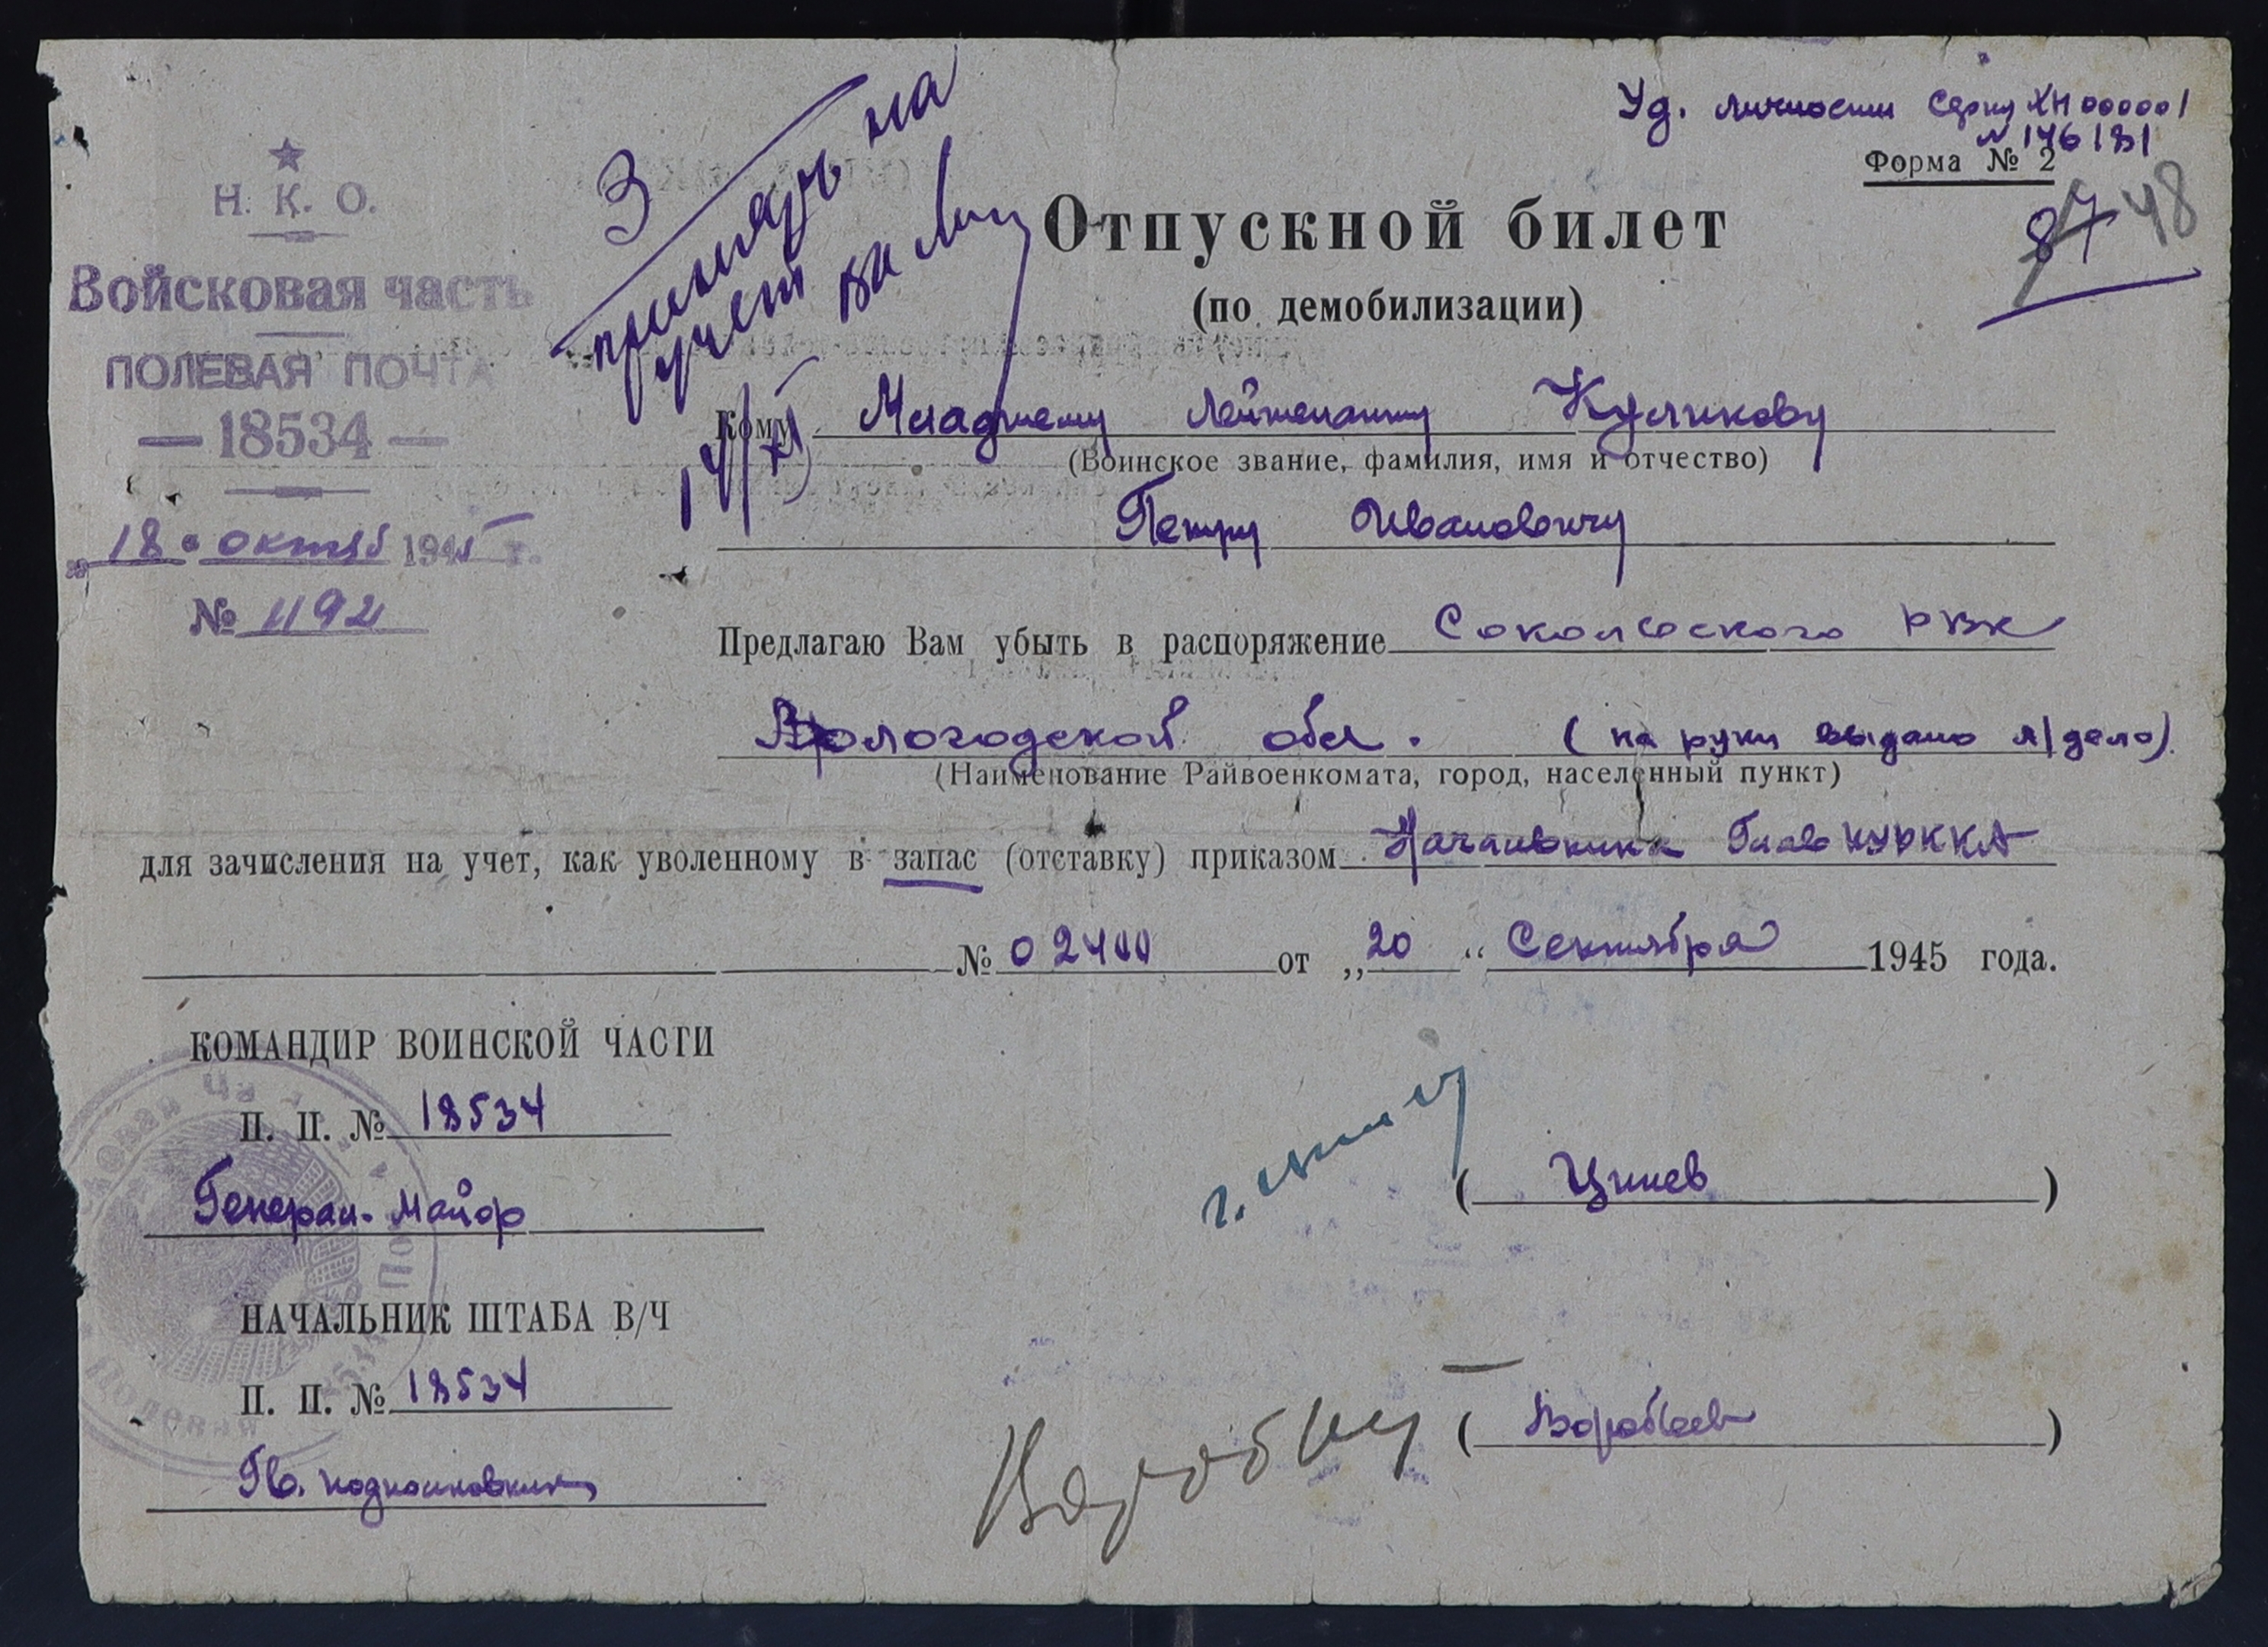 Уд. личности Серия ХН 000001
N 176181
Форма № 2
87 48
Н. К. О.
Войсковая часть
ПОЛЕВАЯ ПОЧТА
— 18534 —
„18“ октяб 1945 г.
№ 1192
3
принять на
учет
14/XI
Отпускной билет
(по демобилизации)
Кому Младшему Лейтенанту Куликову
(Воинское звание, фамилия, имя и отчество)
Петру Ивановичу
Предлагаю Вам убыть в распоряжение Сокольского РВК
Вологодской обл. (на руки выдано л/дело).
(Наименование Райвоенкомата, город, населенный пункт)
для зачисления на учет, как уволенному в запас (отставку) приказом Начальника ГлавПУРККА
№ 02400 от „20“ Сентября 1945 года.
КОМАНДИР ВОИНСКОЙ ЧАСТИ
П. П. № 18534
Генерал-Майор (Цинев)
НАЧАЛЬНИК ШТАБА В/Ч
П. П. № 18534
Гв. подполковник (Воробьев)